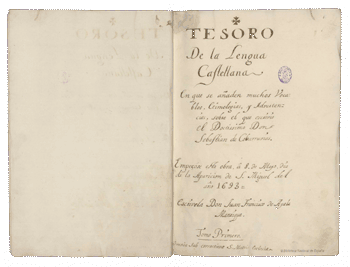 TESORO
De la Lengua
Castellana
En que se añaden muchos Voca
blos, Etimologias, y Advertenc
cias, sobre el que escrivió
el Doctissimo Don
Sebastian de Cobarruvias.
Empezose esta obra à 8. de Mayo dia
de la Aparicion de S. Miguel del
año 1693.
Escriviola Don Juan Francisco de Ayala
Manrique.
Tomo Primero.